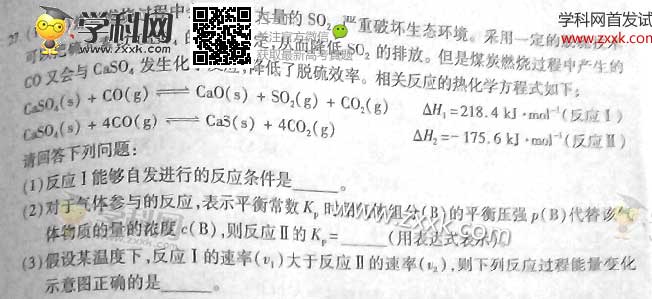 学科网首发试
www.zxxk.com
学科网
www.zxxk.com
关注官方微信
获取最新高考真题
27 过程中 大量的 SO₂ 严重破坏生态环境。采用一定的脱硫技术
可以 的 定,从而降低 SO₂ 的排放。但是煤炭燃烧过程中产生的
CO 又会与 CaSO₄ 发生化学反应,降低了脱硫效率。相关反应的热化学方程式如下:
CaSO₄(s) + CO(g) ⇌ CaO(s) + SO₂(g) + CO₂(g) ΔH₁=218.4 kJ·mol⁻¹(反应Ⅰ)
CaSO₄(s) + 4CO(g) ⇌ CaS(s) + 4CO₂(g) ΔH₂=-175.6 kJ·mol⁻¹(反应Ⅱ)
请回答下列问题:
(1)反应Ⅰ能够自发进行的反应条件是____。
(2)对于气体参与的反应,表示平衡常数 Kp 时用气体组分(B)的平衡压强 p(B)代替该气
体物质的量的浓度 c(B),则反应Ⅱ的 Kp=____(用表达式表示)
(3)假设某温度下,反应Ⅰ的速率(v₁)大于反应Ⅱ的速率(v₂),则下列反应过程能量变化
示意图正确的是____。
学科网
www.zxxk.com